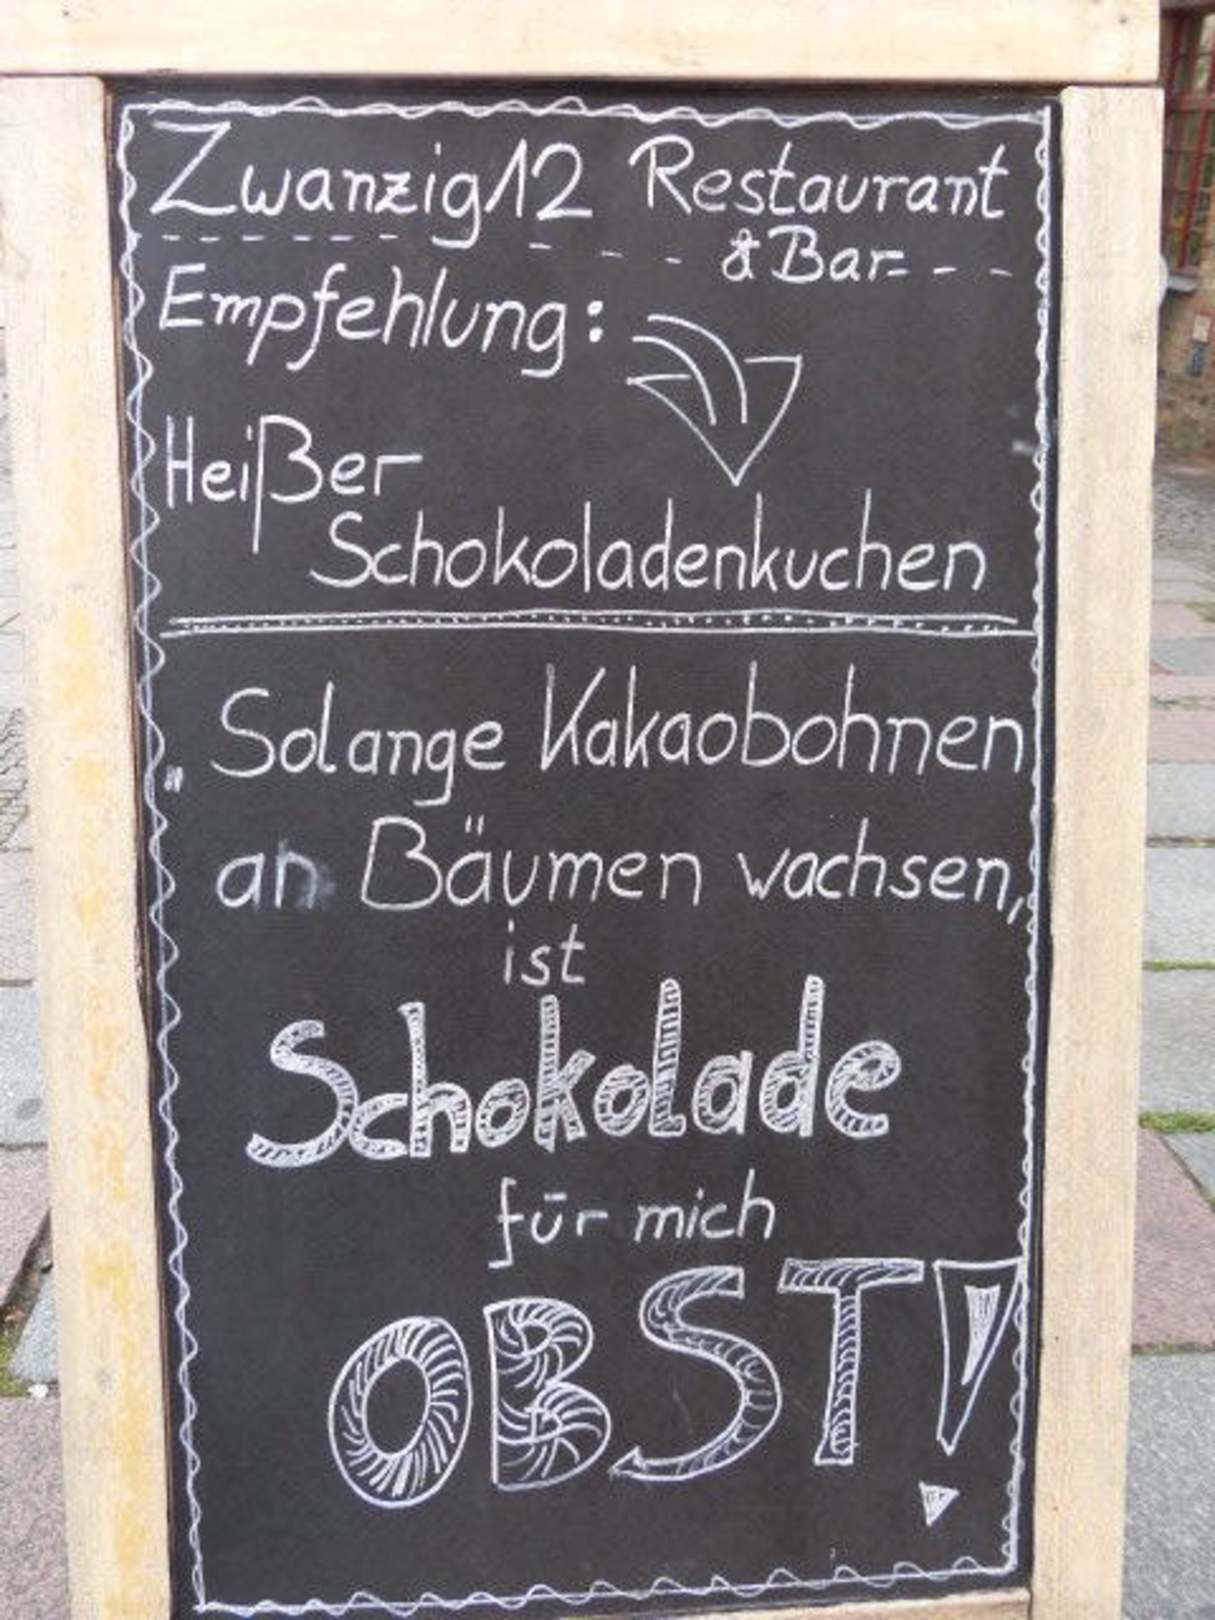 Zwanzig12 Restaurant
& Bar
Empfehlung:
Heißer
Schokoladenkuchen
„Solange Kakaobohnen
an Bäumen wachsen,
ist
Schokolade
für mich
OBST!